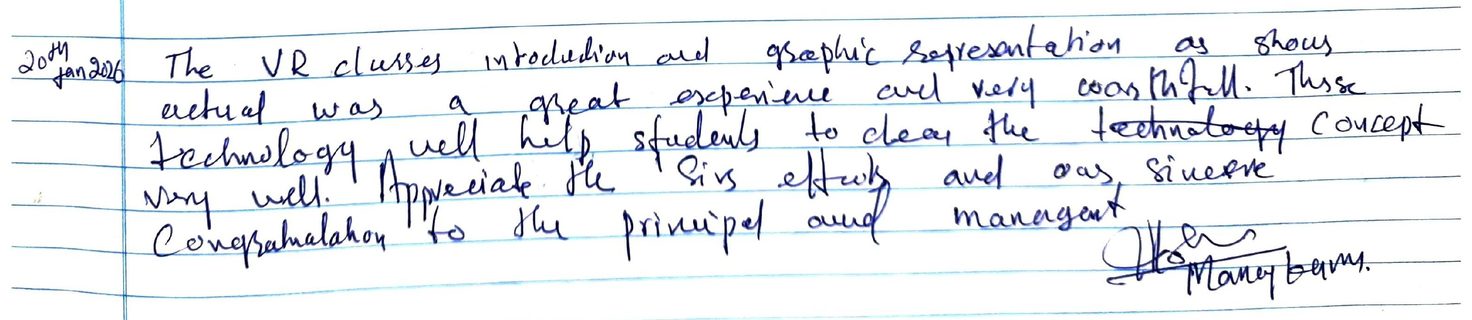 20th Jan 2026
The VR classes introdudion and graphic representation as shows
actual was a great experience and very worthfull. These
technology will help students to clear the technology Concept
very well. Appreciate the Sirs efforts and our sincere
Congratualation to the principal and managent